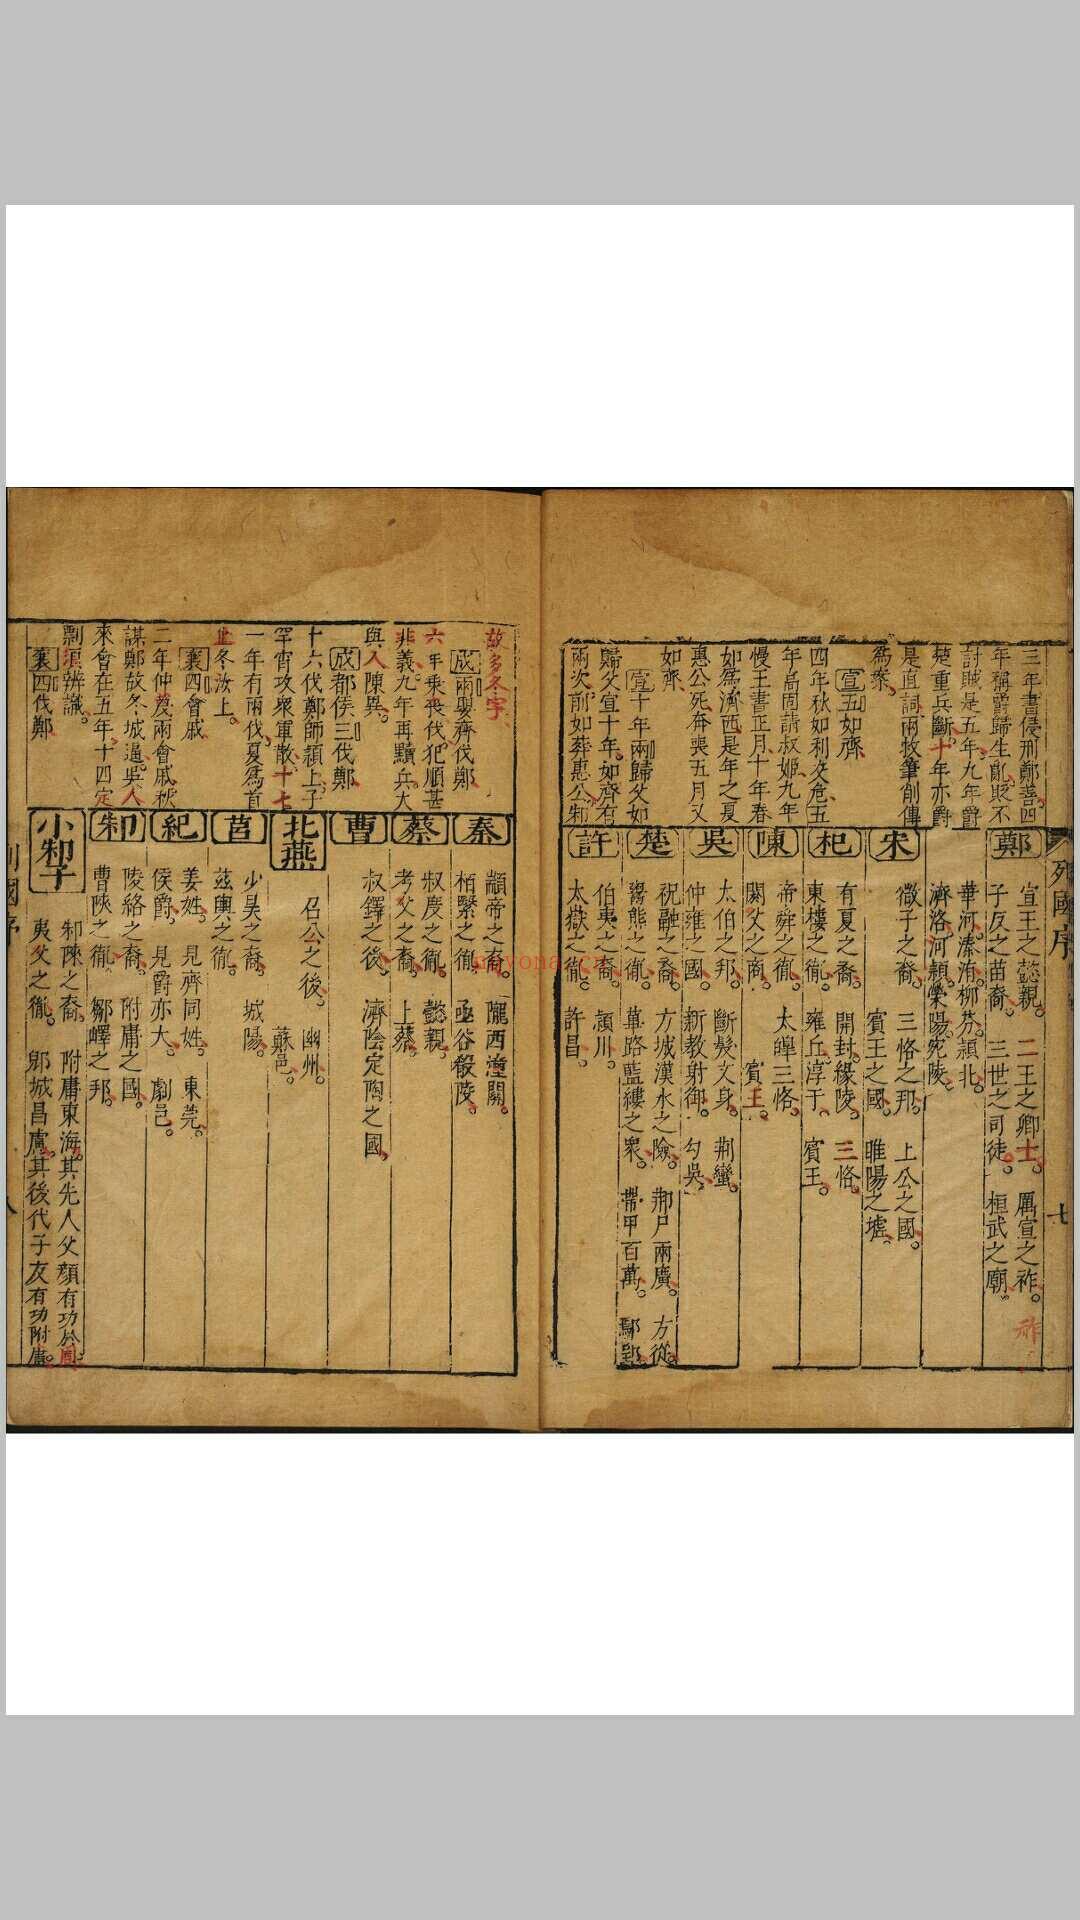 三年書侵刑鄭善四
年稱爵歸生亂貶不
討賊是五年九年爵
楚重兵斷十年亦爵
是直詞兩牧筆削傳
為案
宣五如齊
四年秋如利交危五
年高固請叔姬九年
慢王書正月十年春
如為濟西是年之夏
惠公死奔喪五月又
如齊
宣十年兩歸父如
歸父宣十年如齊有
兩次前如葬惠公邾
列國序
七
鄭
宣王之懿親 二王之卿士 厲宣之祚
祚
子友之苗裔 三世之司徒 桓武之廟
華河溱洧柳芬潁北
濟洛河潁滎陽宛陵
宋
微子之裔 三恪之邦 上公之國
賓王之國 睢陽之墟
杞
有夏之裔 開封緣陵 三恪
東樓之徹 雍丘淳于 賓王
陳
帝舜之徹 太皞三恪
閼父之商 賓王
吳
太伯之邦 斷髮文身 荆蠻
仲雍之國 新教射御 勾吳
楚
祝融之裔 方城漢水之險 荊尸兩廣 方從
鬻熊之徹 蓽路藍縷之衆 帶甲百萬 鄢郢
許
伯夷之裔 潁川
太嶽之徹 許昌
故多冬字
成兩嬰齊伐鄭
六年乘喪伐犯順甚
非義九年再黷兵大
與人陳異
成都侯三伐鄭
十六伐鄭師潁上子
罕宵攻衆軍散十七
一年有兩伐夏為首
止冬汝上
襄四會戚
二年仲蔑兩會戚秋
謀鄭故冬城逼吳人
來會在五年十四定
剽須辨識
襄四伐鄭
秦
顓帝之裔 隴西潼關
栢繄之徹 亟谷殽陵
蔡
叔度之徹 懿親
考父之裔 上蔡
曹
叔鐸之後 濟陰定陶之國
北燕
召公之後 幽州
蘇邑
莒
少昊之裔 城陽
茲輿之徹
紀
姜姓 見齊同姓 東莞
侯爵 見爵亦大 劇邑
邾
陵絡之裔 附庸之國
曹陝之徹 鄒嶧之邦
小邾子
邾陳之裔 附庸東海其先人父顏有功於周
夷父之徹 郳城昌慮其後代子友有功附庸
列國序
八